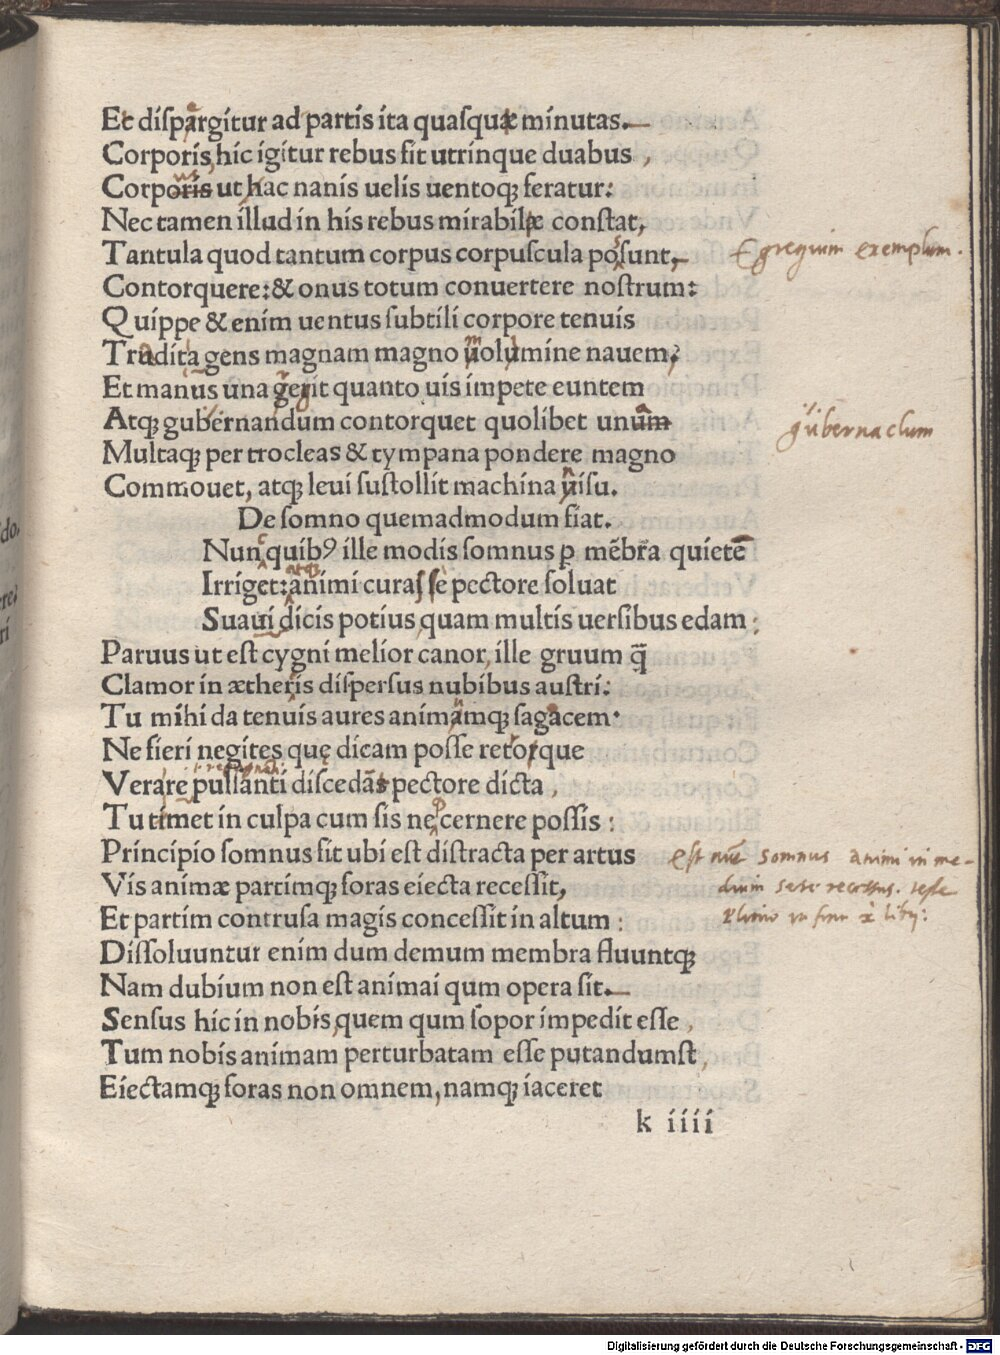 Et dispargitur ad partis ita quasquæ minutas.
Corporis, hic igitur rebus fit utrinque duabus,
Corporis ut hac nanis uelis uentoqꝫ feratur:
Nec tamen illud in his rebus mirabilæ constat,
Tantula quod tantum corpus corpuscula posunt,
Egregium exemplum.
Contorquere: & onus totum conuertere nostrum:
Quippe & enim uentus subtili corpore tenuis
Trudita gens magnam magno uolumine nauem,
Et manus una gerit quanto uis impete euntem
Atqꝫ gubernandum contorquet quolibet unum
gubernaclum
Multaqꝫ per trocleas & tympana pondere magno
Commouet, atqꝫ leui sustollit machina uisu.
De somno quemadmodum fiat.
Nun quibꝰ ille modis somnus ꝑ mẽbra quietẽ
atqꝫ
Irriget: animi curas se pectore soluat
Suaui dicis potius quam multis uersibus edam:
Paruus ut est cygni melior canor, ille gruum q̃
Clamor in ætheris dispersus nubibus austri:
Tu mihi da tenuis aures animamqꝫ sagacem.
Ne fieri negites quę dicam posse retorque
Verare pulsanti discedas pectore dicta,
Tu timet in culpa cum sis ne cernere possis:
Principio somnus fit ubi est distracta per artus
Est nãe somnus animi in me-
Vis animæ partimqꝫ foras eiecta recessit,
dium sese recessus. teste
Et partim contrusa magis concessit in altum:
Plinio in fine
Dissoluuntur enim dum demum membra fluuntqꝫ
Nam dubium non est animai qum opera sit.
Sensus hic in nobis, quem qum sopor impedit esse,
Tum nobis animam perturbatam esse putandumst,
Eiectamqꝫ foras non omnem, namqꝫ iaceret
k iiii
Digitalisierung gefördert durch die Deutsche Forschungsgemeinschaft - DFG